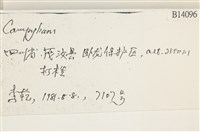 B14096
Campylium
四川省、茂汶县 卧龙保护区, alt. 2150M
打柱
李乾, 1981.8.8., 7107号